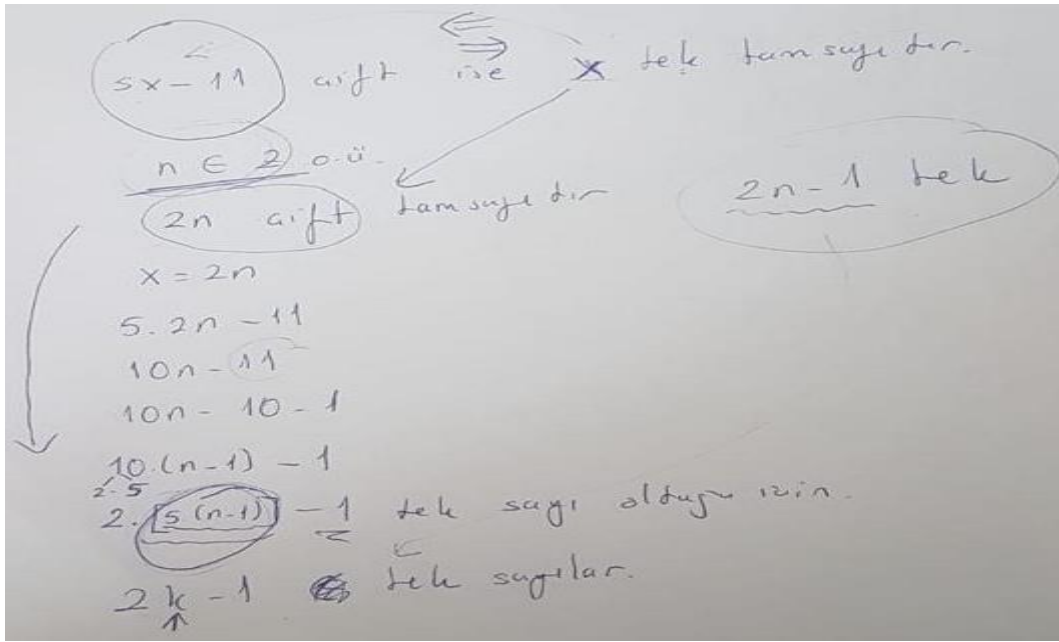 5x - 11 çift ise ⇐ ⇒ x tek tamsayıdır.
n ∈ Z o.ü.
2n çift tamsayıdır
2n - 1 tek
x = 2n
5. 2n - 11
10n - 11
10n - 10 - 1
10.(n-1) - 1
2.5
2. [5(n-1)] - 1 tek sayı olduğu için.
2k - 1 tek sayılar.